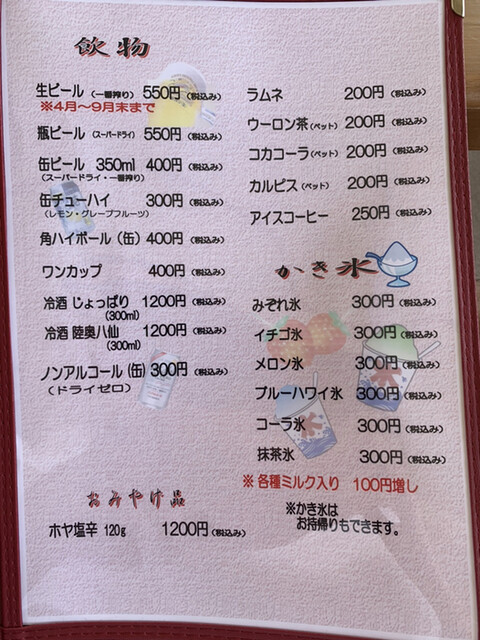 飲物
生ビール（一番搾り）550円（税込み）
※4月～9月末まで
瓶ビール（スーパードライ）550円（税込み）
缶ビール 350ml 400円（税込み）
（スーパードライ・一番搾り）
缶チューハイ 300円（税込み）
（レモン・グレープフルーツ）
角ハイボール（缶）400円（税込み）
ワンカップ 400円（税込み）
冷酒 じょっぱり 1200円（税込み）
（300ml）
冷酒 陸奥八仙 1200円（税込み）
（300ml）
ノンアルコール（缶）300円（税込み）
（ドライゼロ）
おみやげ品
ホヤ塩辛 120g 1200円（税込み）
ラムネ 200円（税込み）
ウーロン茶（ペット）200円（税込み）
コカコーラ（ペット）200円（税込み）
カルピス（ペット）200円（税込み）
アイスコーヒー 250円（税込み）
かき氷
みぞれ氷 300円（税込み）
イチゴ氷 300円（税込み）
メロン氷 300円（税込み）
ブルーハワイ氷 300円（税込み）
コーラ氷 300円（税込み）
抹茶氷 300円（税込み）
※各種ミルク入り 100円増し
※かき氷は
お持帰りもできます。